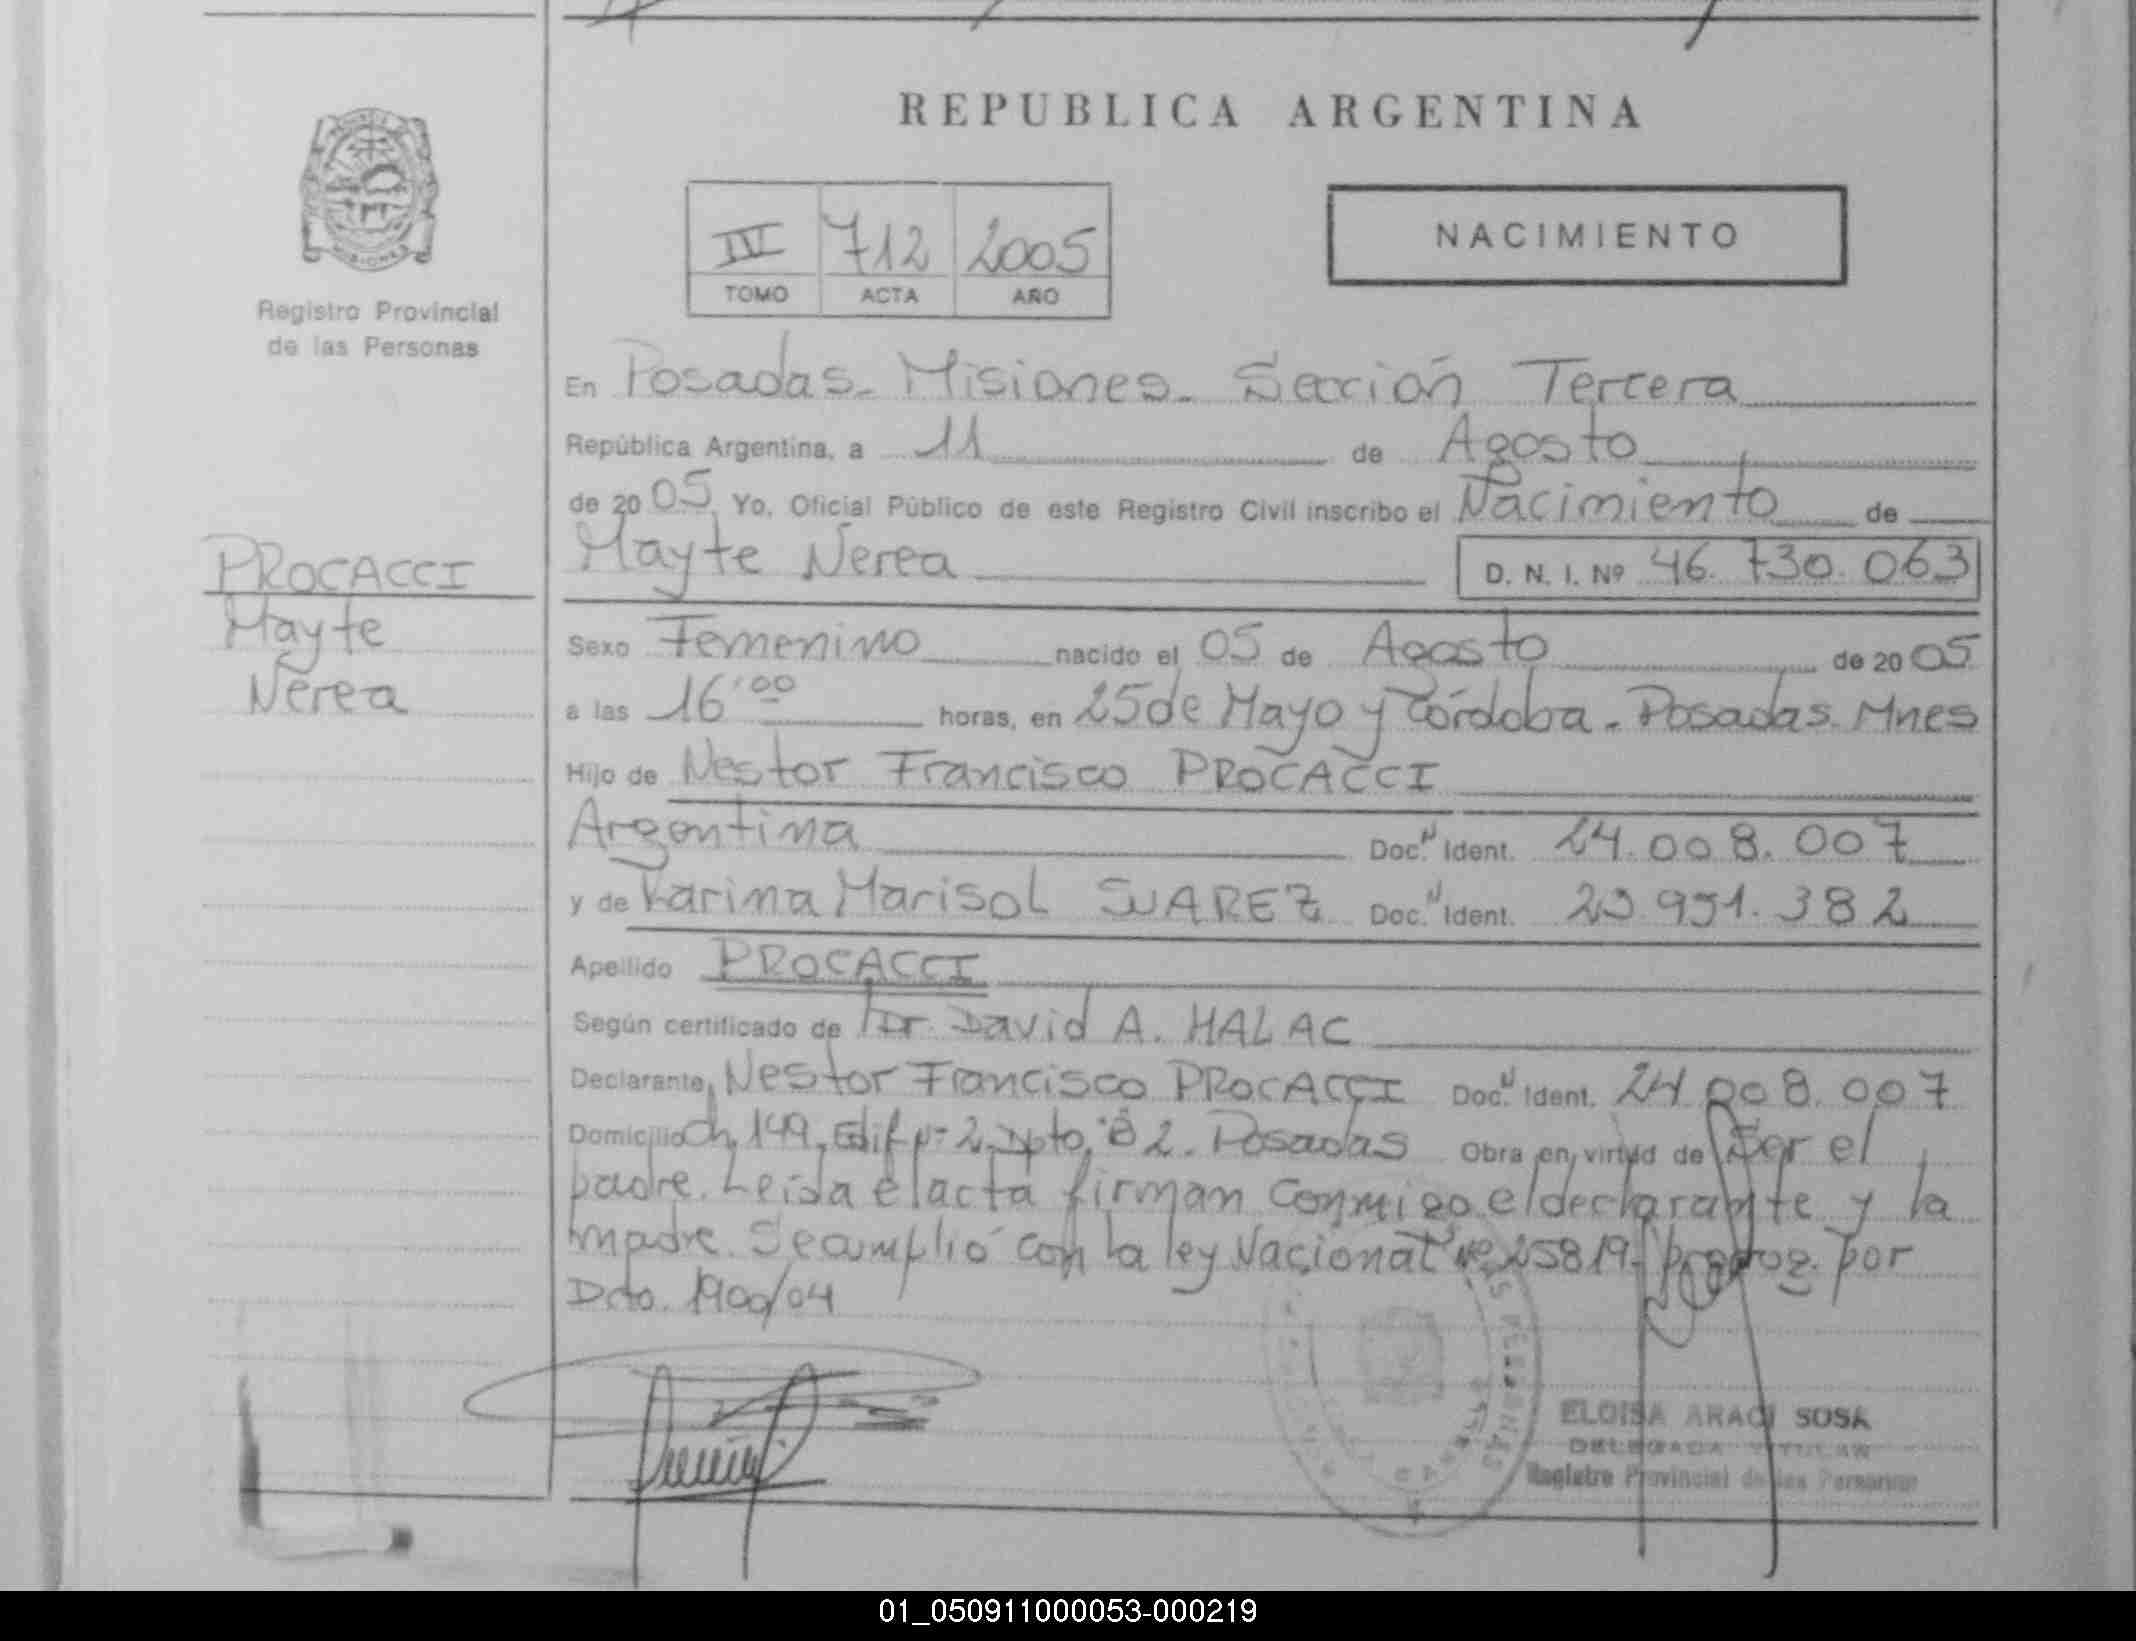 REPUBLICA ARGENTINA
IV 712 2005
TOMO ACTA AÑO
NACIMIENTO
Registro Provincial
de las Personas
En Posadas - Misiones - Sección Tercera
República Argentina, a 11 de Agosto
de 2005 Yo, Oficial Público de este Registro Civil inscribo el Nacimiento de
Mayte Nerea D. N. I. Nº 46.730.063
PROCACCI
Mayte
Nerea
Sexo Femenino nacido el 05 de Agosto de 2005
a las 16'00 horas, en 25 de Mayo y Córdoba - Posadas. Mnes
Hijo de Nestor Francisco PROCACCI
Argentina Doc. Ident. 24.008.007
y de Karina Marisol SUAREZ Doc. Ident. 23.951.382
Apellido PROCACCI
Según certificado de Dr. David A. HALAC
Declarante, Nestor Francisco PROCACCI Doc. Ident. 24.008.007
Domicilio Ch. 149, Edif Nº 2, Dpto. "B" 2. Posadas Obra en virtud de Ser el
padre. Leída el acta firman conmigo el declarante y la
madre. Se cumplió con la ley Nacional Nº 25819 - por
Dcto. 1900/04
ELOISA ARACI SOSA
DELEGADA TITULAR
Registro Provincial de las Personas
01_050911000053-000219